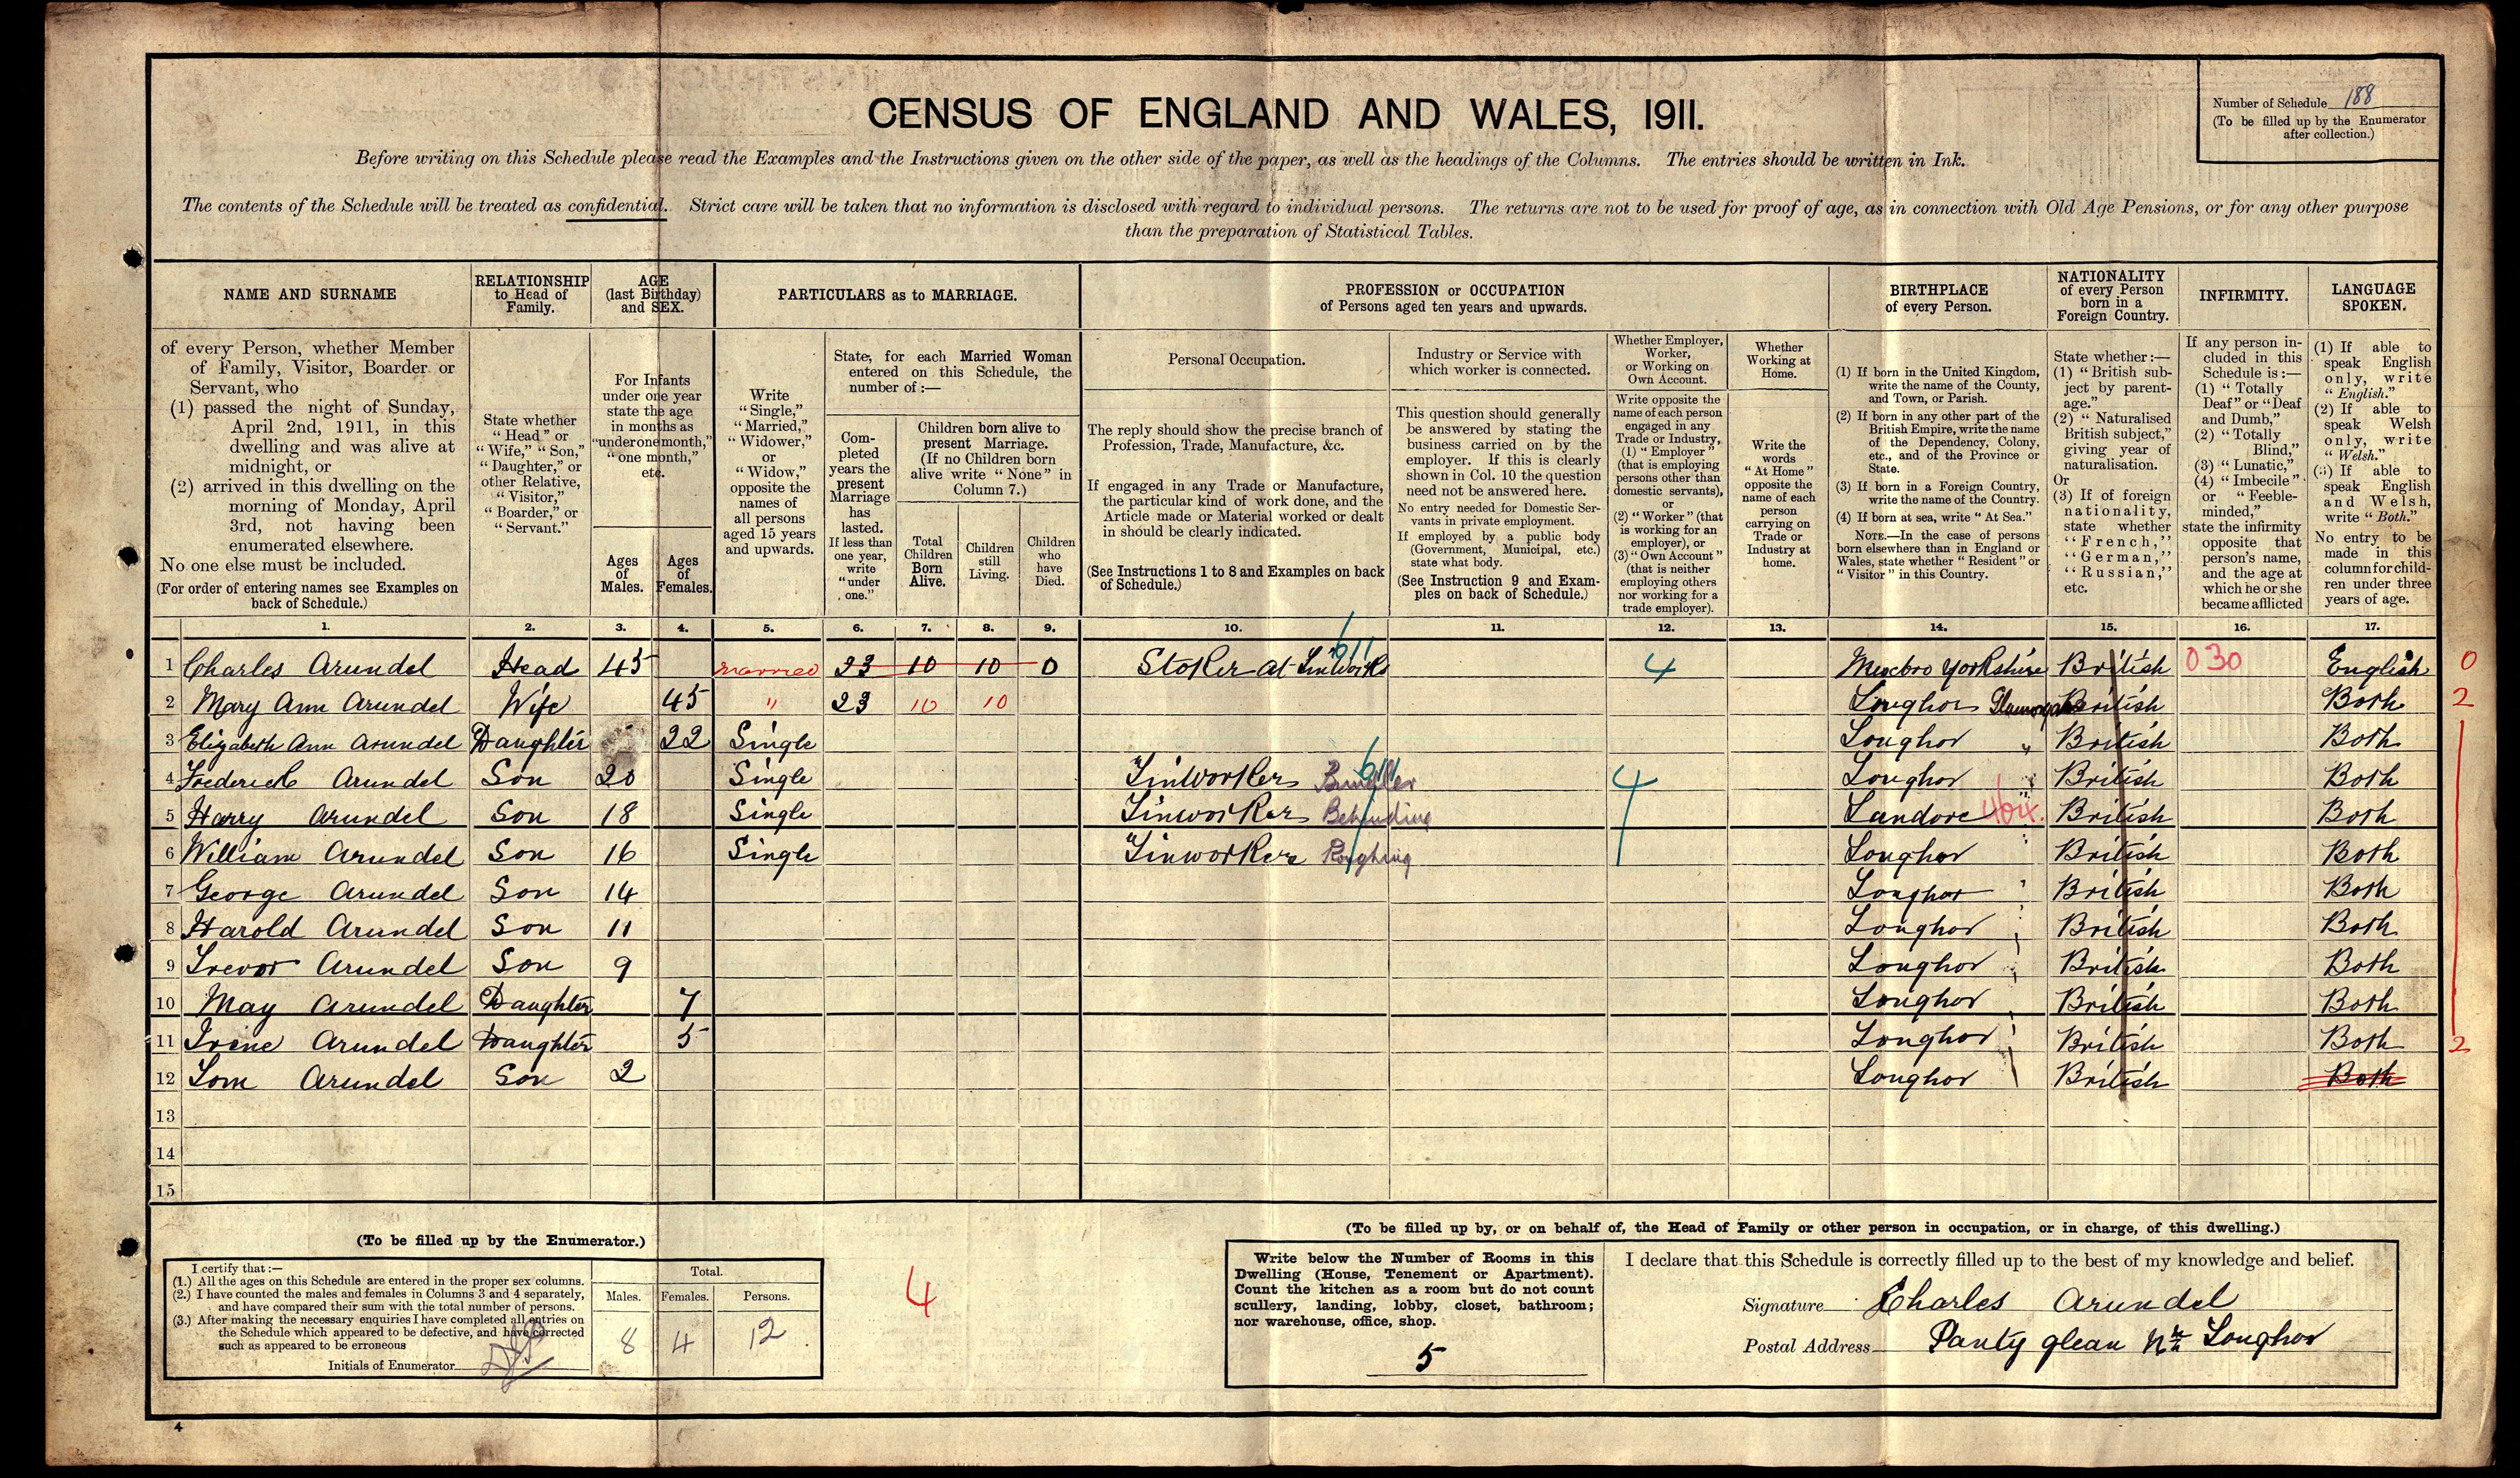 CENSUS OF ENGLAND AND WALES, 1911.
Number of Schedule 188
(To be filled up by the Enumerator
after collection.)
Before writing on this Schedule please read the Examples and the Instructions given on the other side of the paper, as well as the headings of the Columns. The entries should be written in Ink.
The contents of the Schedule will be treated as confidential. Strict care will be taken that no information is disclosed with regard to individual persons. The returns are not to be used for proof of age, as in connection with Old Age Pensions, or for any other purpose
than the preparation of Statistical Tables.
NAME AND SURNAME
of every Person, whether Member
of Family, Visitor, Boarder or
Servant, who
(1) passed the night of Sunday,
April 2nd, 1911, in this
dwelling and was alive at
midnight, or
(2) arrived in this dwelling on the
morning of Monday, April
3rd, not having been
enumerated elsewhere.
No one else must be included.
(For order of entering names see Examples on
back of Schedule.)
RELATIONSHIP
to Head of
Family.
State whether
"Head" or
"Wife," "Son,"
"Daughter," or
other Relative,
"Visitor,"
"Boarder," or
"Servant."
AGE
(last Birthday)
and SEX.
For Infants
under one year
state the age
in months as
"under one month,"
"one month,"
etc.
Ages
of
Males.
Ages
of
Females.
PARTICULARS as to MARRIAGE.
Write
"Single,"
"Married,"
"Widower,"
or
"Widow,"
opposite the
names of
all persons
aged 15 years
and upwards.
State, for each Married Woman
entered on this Schedule, the
number of :—
Com-
pleted
years the
present
Marriage
has
lasted.
If less than
one year,
write
"under
one."
Children born alive to
present Marriage.
(If no Children born
alive write "None" in
Column 7.)
Total
Children
Born
Alive.
Children
still
Living.
Children
who
have
Died.
PROFESSION or OCCUPATION
of Persons aged ten years and upwards.
Personal Occupation.
The reply should show the precise branch of
Profession, Trade, Manufacture, &c.
If engaged in any Trade or Manufacture,
the particular kind of work done, and the
Article made or Material worked or dealt
in should be clearly indicated.
(See Instructions 1 to 8 and Examples on back
of Schedule.)
Industry or Service with
which worker is connected.
This question should generally
be answered by stating the
business carried on by the
employer. If this is clearly
shown in Col. 10 the question
need not be answered here.
No entry needed for Domestic Ser-
vants in private employment.
If employed by a public body
(Government, Municipal, etc.)
state what body.
(See Instruction 9 and Exam-
ples on back of Schedule.)
Whether Employer,
Worker,
or Working on
Own Account.
Write opposite the
name of each person
engaged in any
Trade or Industry,
(1) "Employer"
(that is employing
persons other than
domestic servants),
or
(2) "Worker" (that
is working for an
employer), or
(3) "Own Account"
(that is neither
employing others
nor working for a
trade employer).
Whether
Working at
Home.
Write the
words
"At Home"
opposite the
name of each
person
carrying on
Trade or
Industry at
home.
BIRTHPLACE
of every Person.
(1) If born in the United Kingdom,
write the name of the County,
and Town, or Parish.
(2) If born in any other part of the
British Empire, write the name
of the Dependency, Colony,
etc., and of the Province or
State.
(3) If born in a Foreign Country,
write the name of the Country.
(4) If born at sea, write "At Sea."
NOTE.—In the case of persons
born elsewhere than in England or
Wales, state whether "Resident" or
"Visitor" in this Country.
NATIONALITY
of every Person
born in a
Foreign Country.
State whether :—
(1) "British sub-
ject by parent-
age."
(2) "Naturalised
British subject,"
giving year of
naturalisation.
Or
(3) If of foreign
nationality,
state whether
"French,"
"German,"
"Russian,"
etc.
INFIRMITY.
If any person in-
cluded in this
Schedule is :—
(1) "Totally
Deaf" or "Deaf
and Dumb,"
(2) "Totally
Blind,"
(3) "Lunatic,"
(4) "Imbecile"
or "Feeble-
minded,"
state the infirmity
opposite that
person's name,
and the age at
which he or she
became afflicted
LANGUAGE
SPOKEN.
(1) If able to
speak English
only, write
"English."
(2) If able to
speak Welsh
only, write
"Welsh."
(3) If able to
speak English
and Welsh,
write "Both."
No entry to be
made in this
column for child-
ren under three
years of age.
1. 2. 3. 4. 5. 6. 7. 8. 9. 10. 11. 12. 13. 14. 15. 16. 17.
1 Charles Arundel Head 45 married 23 10 10 0 Stoker at Tinworks 611 4 Mexbro Yorkshire British 030 English 0
2 Mary Ann Arundel Wife 45 " 23 10 10 Loughor Glamorgan British Both 2
3 Elizabeth Ann Arundel Daughter 22 Single Loughor " British Both
4 Frederick Arundel Son 20 Single Tinworker Bundler 611 4 Loughor " British Both
5 Harry Arundel Son 18 Single Tinworker Behinding Landore " 404. British Both
6 William Arundel Son 16 Single Tinworker Roughing Loughor " British Both
7 George Arundel Son 14 Loughor British Both
8 Harold Arundel Son 11 Loughor British Both
9 Trevor Arundel Son 9 Loughor British Both
10 May Arundel Daughter 7 Loughor British Both
11 Irene Arundel Daughter 5 Loughor British Both 2
12 Tom Arundel Son 2 Loughor British Both
13
14
15
(To be filled up by the Enumerator.)
I certify that :—
(1.) All the ages on this Schedule are entered in the proper sex columns.
(2.) I have counted the males and females in Columns 3 and 4 separately,
and have compared their sum with the total number of persons.
(3.) After making the necessary enquiries I have completed all entries on
the Schedule which appeared to be defective, and have corrected
such as appeared to be erroneous
Initials of Enumerator
Total.
Males. Females. Persons.
8 4 12
4
(To be filled up by, or on behalf of, the Head of Family or other person in occupation, or in charge, of this dwelling.)
Write below the Number of Rooms in this
Dwelling (House, Tenement or Apartment).
Count the kitchen as a room but do not count
scullery, landing, lobby, closet, bathroom;
nor warehouse, office, shop.
5
I declare that this Schedule is correctly filled up to the best of my knowledge and belief.
Signature Charles Arundel
Postal Address Panty glean Nr Loughor
4